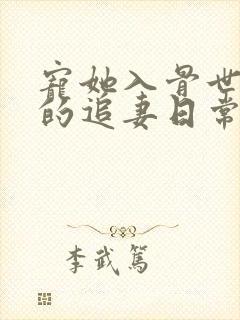 宠她入骨世
的追妻日常
李武笃